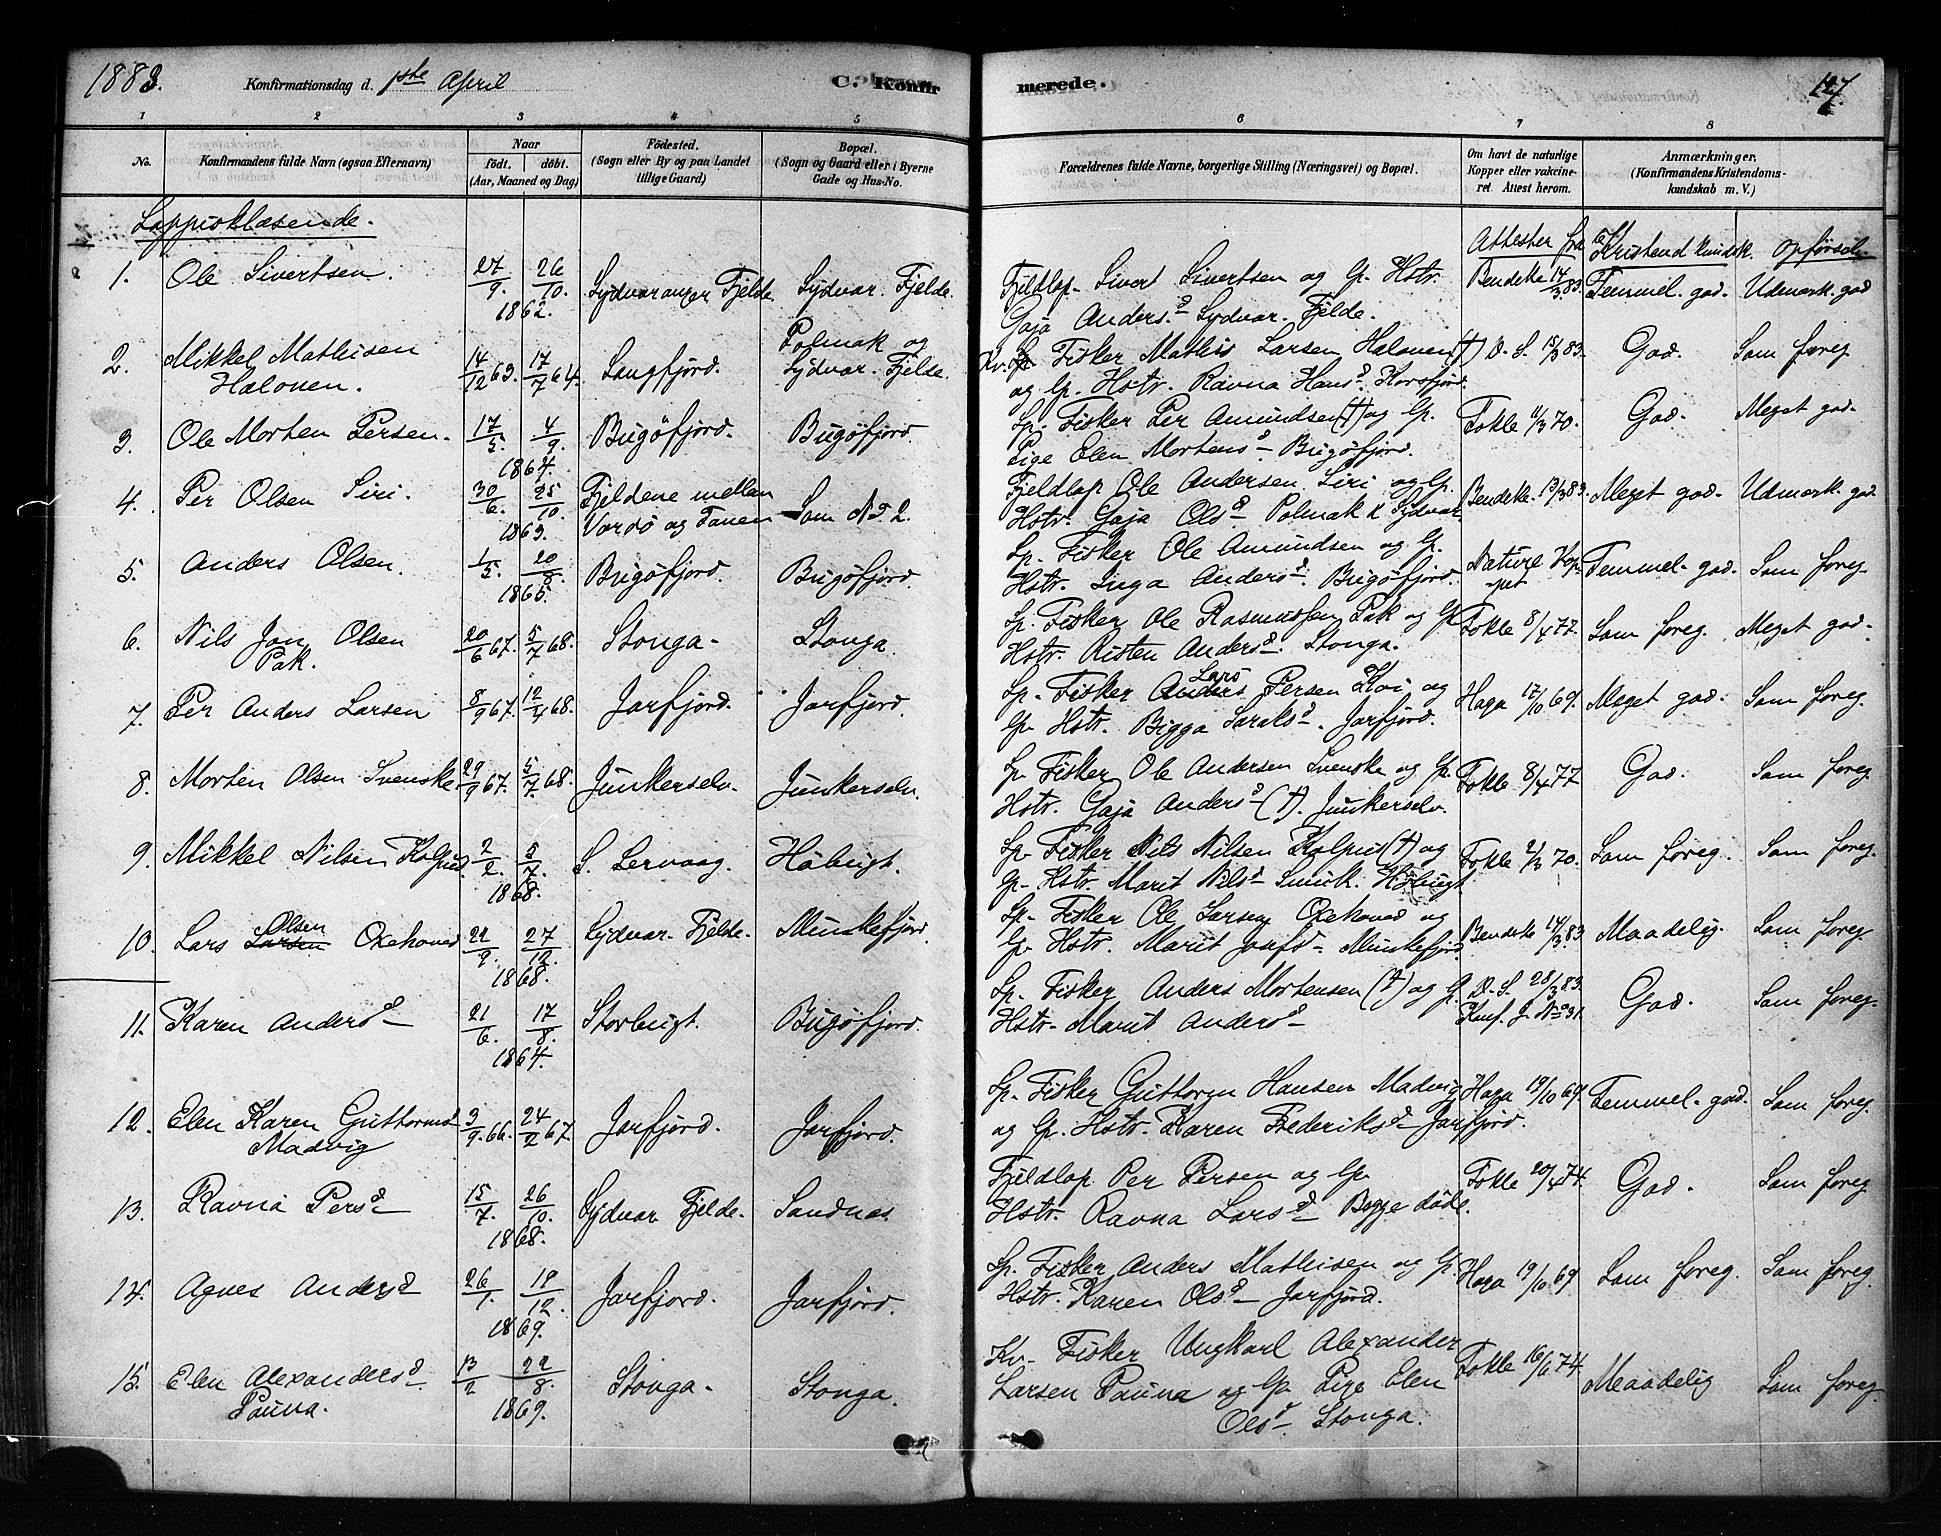 1883. Konfirmationsdag d. 1ste April C. Konfirmerede. 117.
1 2 3 4 5 6 7 8
No. Konfirmandens fulde Navn (ogsaa Efternavn) Naar födt. döbt. (Aar, Maaned og Dag) Födested. (Sogn eller By og paa Landet tillige Gaard) Bopæl. (Sogn og Gaard eller i Byerne Gade og Hus-No. Forældrenes fulde Navne, borgerlige Stilling (Næringsvei) og Bopæl. Om havt de naturlige Kopper eller vakcineret. Attest herom. Anmærkninger. (Konfirmandens Kristendomskundskab m. V.)
Lappisklæsende. Attester fra Kristend. kundsk. Opførsel.
1. Ole Sivertsen. 27/9. 26/10. 1862. Sydvaranger Fjelde Sydvar. Fjelde. Fjeldlap Sivert Sivertsen og Gp. Hstr. Bendeke 14/3 83. Temmel. god. Udmærk. god
Gaja Andersd. Sydvar. Fjelde.
2. Mikkel Mathisen Halonen. 14/12 63. 17/7 64. Langfjord. Polmak og Sydvar. Fjelde. Kv. Fisker Mathis Larsen Halonen (†) D. S. 15/3 83. God. Som foreg
og Gp. Hstr. Ravna Hansd. Korsfjord.
3. Ole Morten Persen. 17/5. 4/9. 1864. Bugöfjord. Bugöfjord. Sp. Fisker Per Amundsen (†) og Gp. Fokle 11/3 70. God. Meget god.
Pige Elen Mortensd. Bugöfjord.
4. Per Olsen Siri. 30/6. 25/10. 1863. Fjeldene mellan Vardö og Tanen Som No 2. Fjeldlap Ole Andersen Siri og Gp. Bendeke 13/3 83. Meget god. Udmærk. god
Hstr. Gaja Olsd. Polmak & Sydvar.
5. Anders Olsen. 1/5. 20/8. 1865. Bugöfjord. Bugöfjord. Sp. Fisker Ole Amundsen og Gp. Naturl. Koppet Temmel. god. Som foreg
Hstr. Inga Andersd. Bugöfjord.
6. Nils Jon Olsen Pak. 20/6 67. 5/7 68. Stonga. Stonga. Sp. Fisker Ole Rasmussen Pak og Gp Fokle 8/4 77. Som foreg. Meget god.
Hstr. Risten Andersd. Stonga.
7. Per Anders Larsen 8/9 67. 12/4 68. Jarfjord. Jarfjord. Sp. Fisker Anders Lars Persen Kvi og Haga 17/10 69. Meget god. Som foreg.
Gp. Hstr. Bigga Larsd. Jarfjord.
8. Morten Olsen Svenske 29/9 67. 5/7 68. Junkerselv. Junkerselv. Sp. Fisker Ole Andersen Svenske og Gp. Fokle 8/4 77 God. Som foreg
Hstr. Gaja Andersd. (†). Junkerselv
9. Mikkel Nilsen Kolpus. 2/2. 5/7. 1868. S. Lervaag. Höbugt. Sp. Fisker Nils Nilsen Kolpus (†) og Fokle 2/3 70. Som foreg. Som foreg
Gp. Hstr. Marit Nilsd Smuk. Höbugt
10. Lars Larsen Olsen Oxehoved 22/2. 27/12. 1868. Sydvar. Fjelde. Munkefjord Sp. Fisker Ole Larsen Oxehoved og Bendeke 14/3 83. Maadelig. Som foreg.
Gp. Hstr. Marit Josefsd. Munkefjord.
11. Karen Andersd. 21/6. 17/8. 1864. Storbugt. Bugöfjord. Sp. Fisker Anders Mortensen (†) og Gp. D. S. 28/3 83. God. Som foreg.
Hstr. Marit Andersd. Konf. J. No 31.
12. Elen Karen Guttormsd Madvig 3/9 66. 24/2 67. Jarfjord. Jarfjord. Sp. Fisker Guttorm Hansen Madvig Haga 19/10 69. Temmel. god. Som foreg
og Gp. Hstr. Karen Frederiksd. Jarfjord.
13. Ravna Persd. 15/7. 26/10. 1868. Sydvar Fjelde. Sandnes. Fjeldlap Per Persen og Gp Fokle 20/4 74. God. Som foreg
Hstr. Ravna Larsd. Begge döde.
14. Agnes Andersd 26/1. 12/12. 1869. Jarfjord. Jarfjord. Sp. Fisker Anders Mathisen og Gp. Haga 19/10 69. Som foreg. Som foreg.
Hstr. Karen Olsd. Jarfjord.
15. Elen Alexandersd. Pauna. 13/2 22/8. 1869. Stonga. Stonga. Kv. Fisker Ungkarl Alexander Fokle 16/6 74. Maadelig Som foreg.
Larsen Pauna og Gp Pige Elen
Olsd. Stonga.